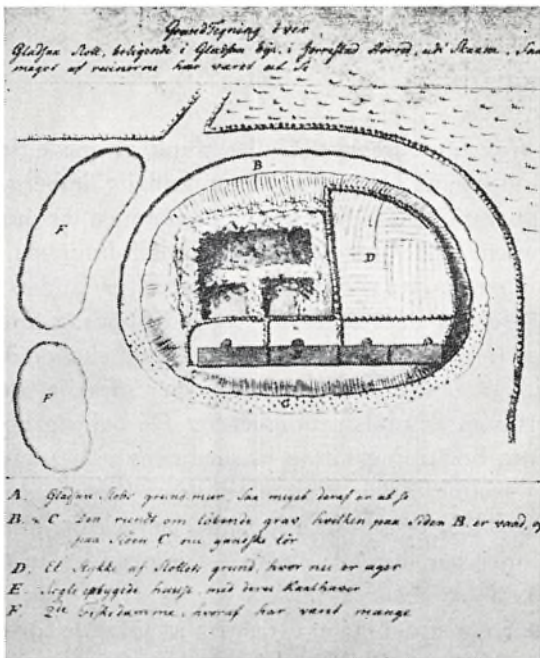 Grund Tegning over
Gladsax Slott, beligende i Gladsax bye, i Herred, udi Skaane, Saa
meget af ruinerne har været at se
B
F
D
F
C
A. Gladsax Slots grund muur, saa meget deraf er at se
B. & C Den rundt om löbende grav, hvilken paa Siden B. er vaad, og
paa Siden C. nu gandske tör
D. Et Stykke af Slottets grund, hvor nu er ager
E. opbygede huuse, med deres Kaalhaver
F. Fiskedamme, hvoraf har været mange